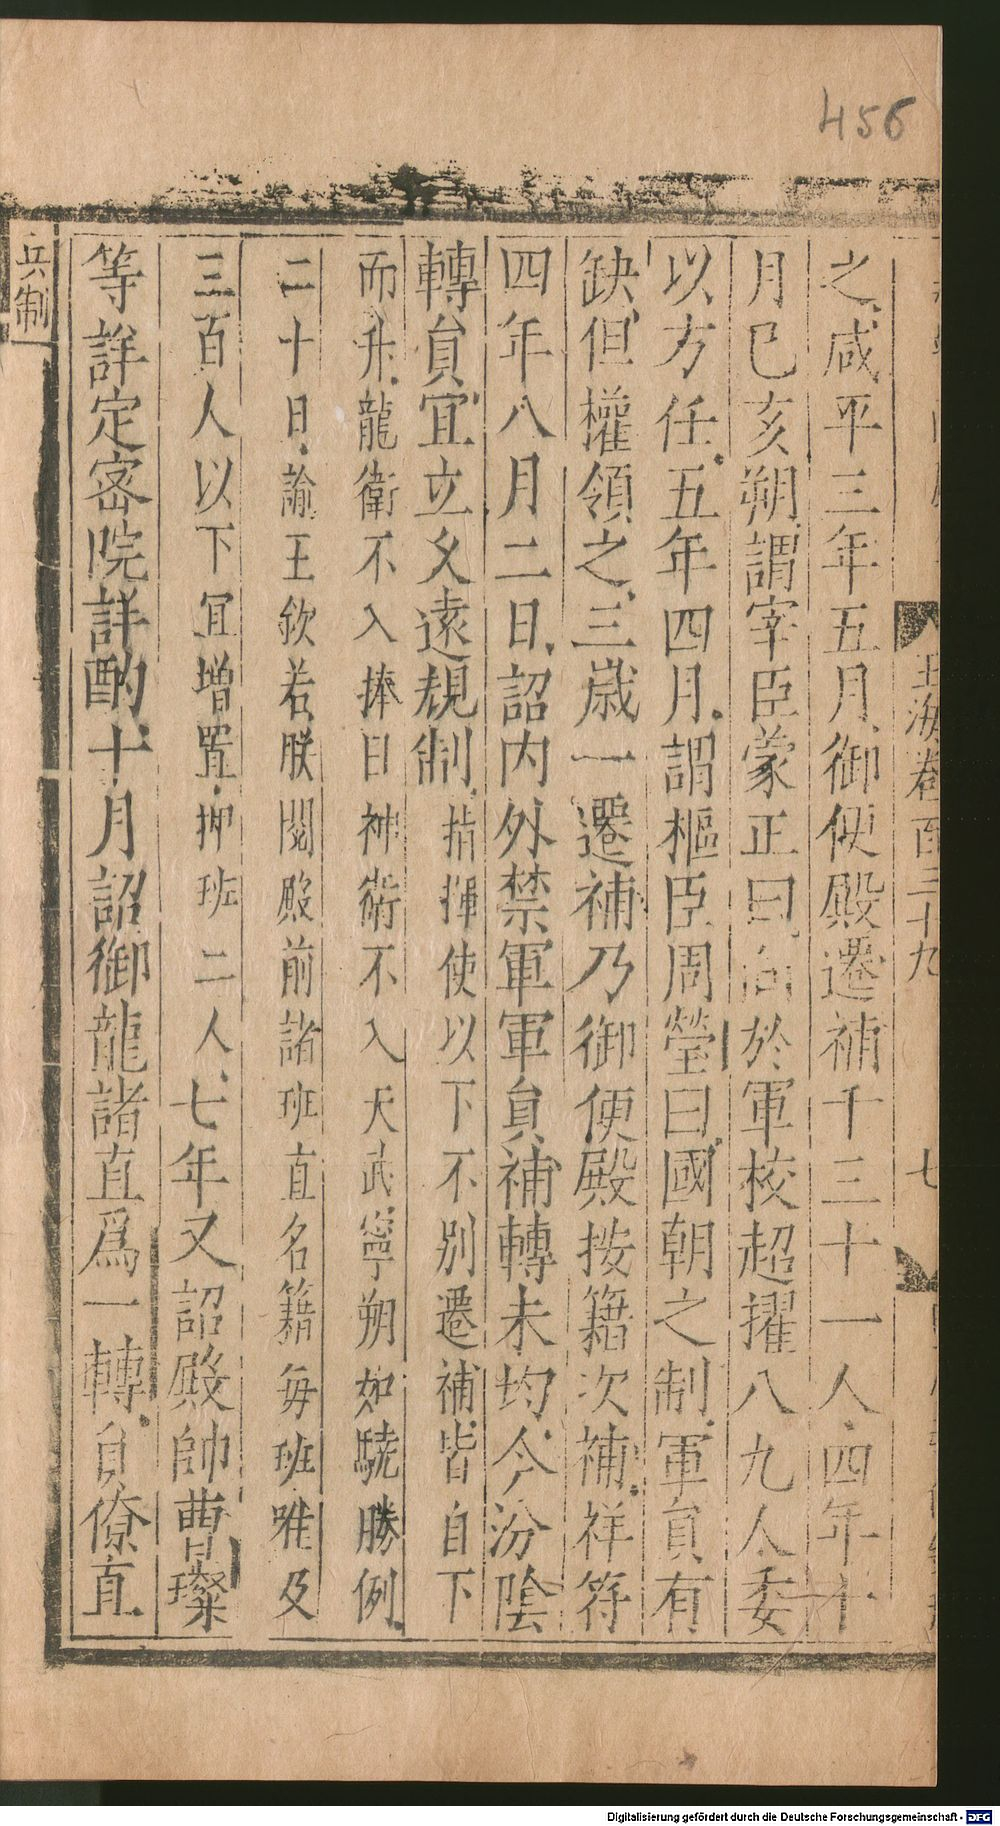 456
玉海卷百三十九
七
之咸平三年五月御便殿遷補千三十一人四年十
月已亥朔謂宰臣蒙正曰向於軍校超擢八九人委
以方任五年四月謂樞臣周瑩曰國朝之制軍貟有
缺但權領之三歲一遷補乃御便殿按籍次補祥符
四年八月二日詔内外禁軍軍貟補轉未均今汾陰
轉貟宜立久遠規制指揮使以下不別遷補皆自下
而升龍衛不入捧日神衛不入天武寧朔如驍勝例
二十日諭王欽若朕閱殿前諸班直名籍每班唯及
三百人以下宜增置押班二人七年又詔殿帥曹璨
等詳定密院詳酌十月詔御龍諸直爲一轉貟僚直
兵制
Digitalisierung gefördert durch die Deutsche Forschungsgemeinschaft - DFG